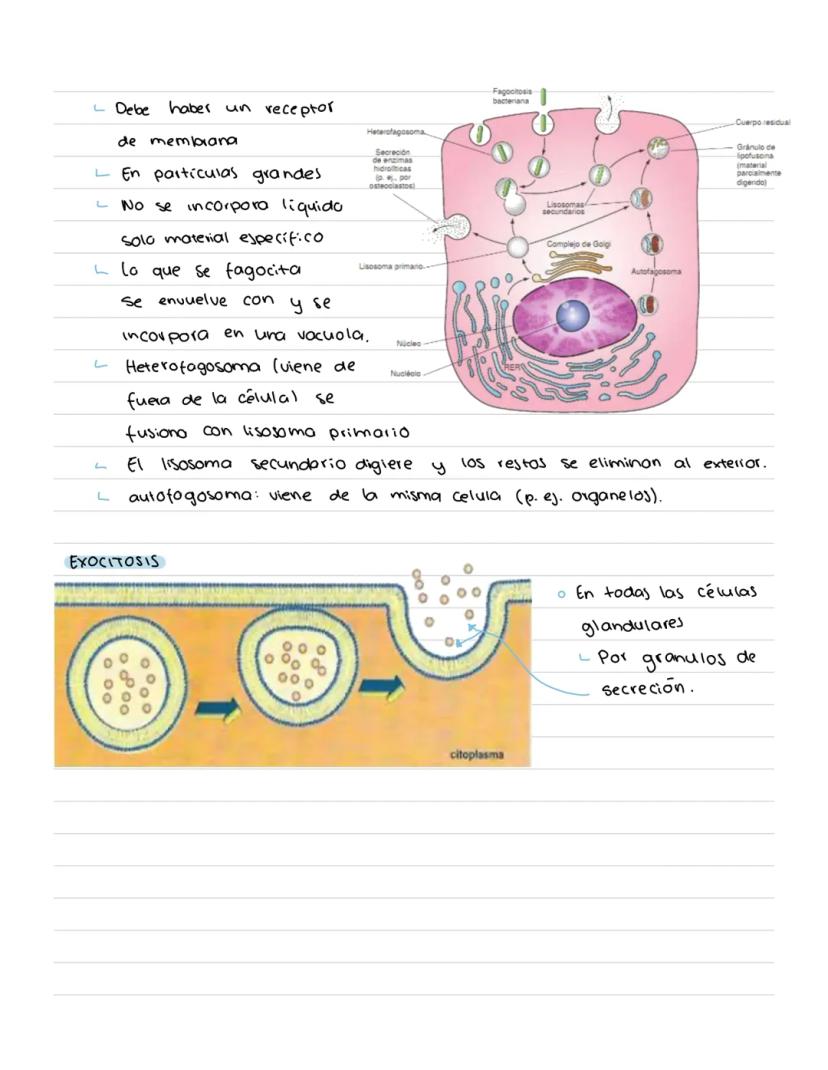 Debe haber un receptor
de membrana
En partículas grandes
No se incorpora líquido
solo material específico
Lo que se fagocita
se envuelve con y se
incorpora en una vacuola.
Heterofagosoma (viene de
fuera de la célula) se
fusiona con lisosoma primario
El lisosoma secundario digiere y los restos se eliminan al exterior.
autofagosoma: viene de la misma celula (p. ej. organelos).
Fagocitosis
bacteriana
Heterofagosoma
Secreción
de enzimas
hidrolíticas
(p. ej., por
osteoclastos)
Cuerpo residual
Gránulo de
lipofuscina
(material
parcialmente
digerido)
Lisosomas
secundarios
Complejo de Golgi
Lisosoma primario
Autofagosoma
Núcleo
Nucléolo
RER
EXOCITOSIS
En todas las células
glandulares
Por granulos de
secreción.
citoplasma